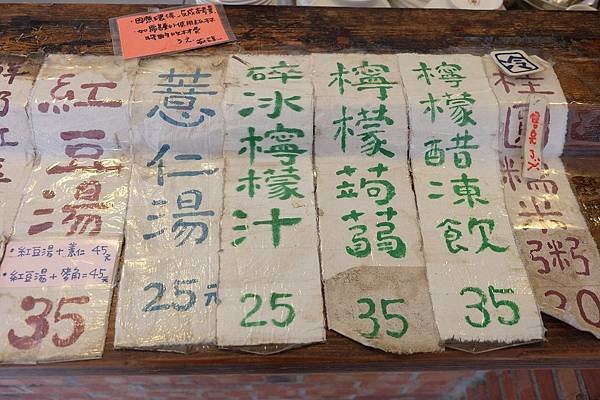 紅豆湯
35
紅豆湯+薏仁 45元
紅豆湯+麥角=45元
薏仁湯
25元
碎冰檸檬汁
25
檸檬蒟蒻
35
檸檬醋凍飲
35
冷
桂圓糯米粥
30